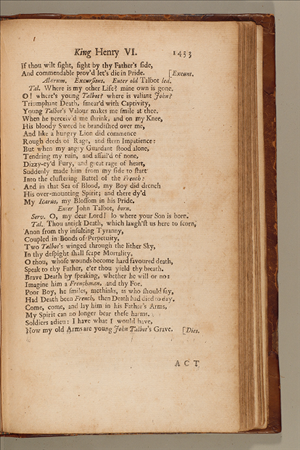 King Henry VI. 1433
If thou wilt fight, fight by thy Father's side,
And commendable prov'd let's die in Pride. [Exeunt.
Alarum. Excursions. Enter old Talbot led.
Tal. Where is my other Life? mine own is gone.
O! where's young Talbot? where is valiant John?
Triumphant Death, smear'd with Captivity,
Young Talbot's Valour makes me smile at thee.
When he perceiv'd me shrink, and on my Knee,
His bloody Sword he brandish'd over me,
And like a hungry Lion did commence
Rough deeds of Rage, and stern Impatience:
But when my angry Guardant stood alone,
Tendring my ruin, and assail'd of none,
Dizzy-ey'd Fury, and great rage of heart,
Suddenly made him from my side to start
Into the clustering Battel of the French:
And in that Sea of Blood, my Boy did drench
His over-mounting Spirit; and there dy'd
My Icarus, my Blossom in his Pride.
Enter John Talbot, born.
Serv. O, my dear Lord! lo where your Son is born.
Tal. Thou antick Death, which laugh'st us here to scorn,
Anon from thy insulting Tyranny,
Coupled in Bonds of Perpetuity,
Two Talbot's winged through the lither Sky,
In thy despight shall scape Mortality.
O thou, whose wounds become hard favoured death,
Speak to thy Father, e'er thou yield thy breath.
Brave Death by speaking, whether he will or no:
Imagine him a Frenchman, and thy Foe.
Poor Boy, he smiles, methinks, as who should say,
Had Death been French, then Death had died to day.
Come, come, and lay him in his Father's Arms,
My Spirit can no longer bear these harms.
Soldiers adieu: I have what I would have,
Now my old Arms are young John Talbot's Grave. [Dies.
ACT